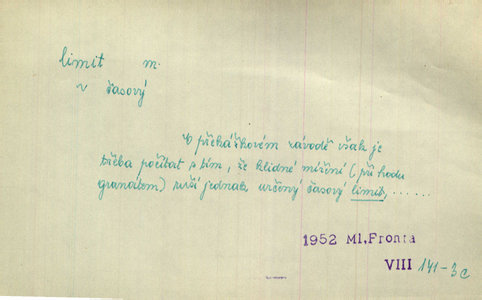 limit m.
v časový
V překážkovém závodě však je
třeba počítat s tím, že klidné míření (při hodu
granátem) ruší jednak určený časový limit, ......
1952 Ml. Fronta
VIII 141-3c